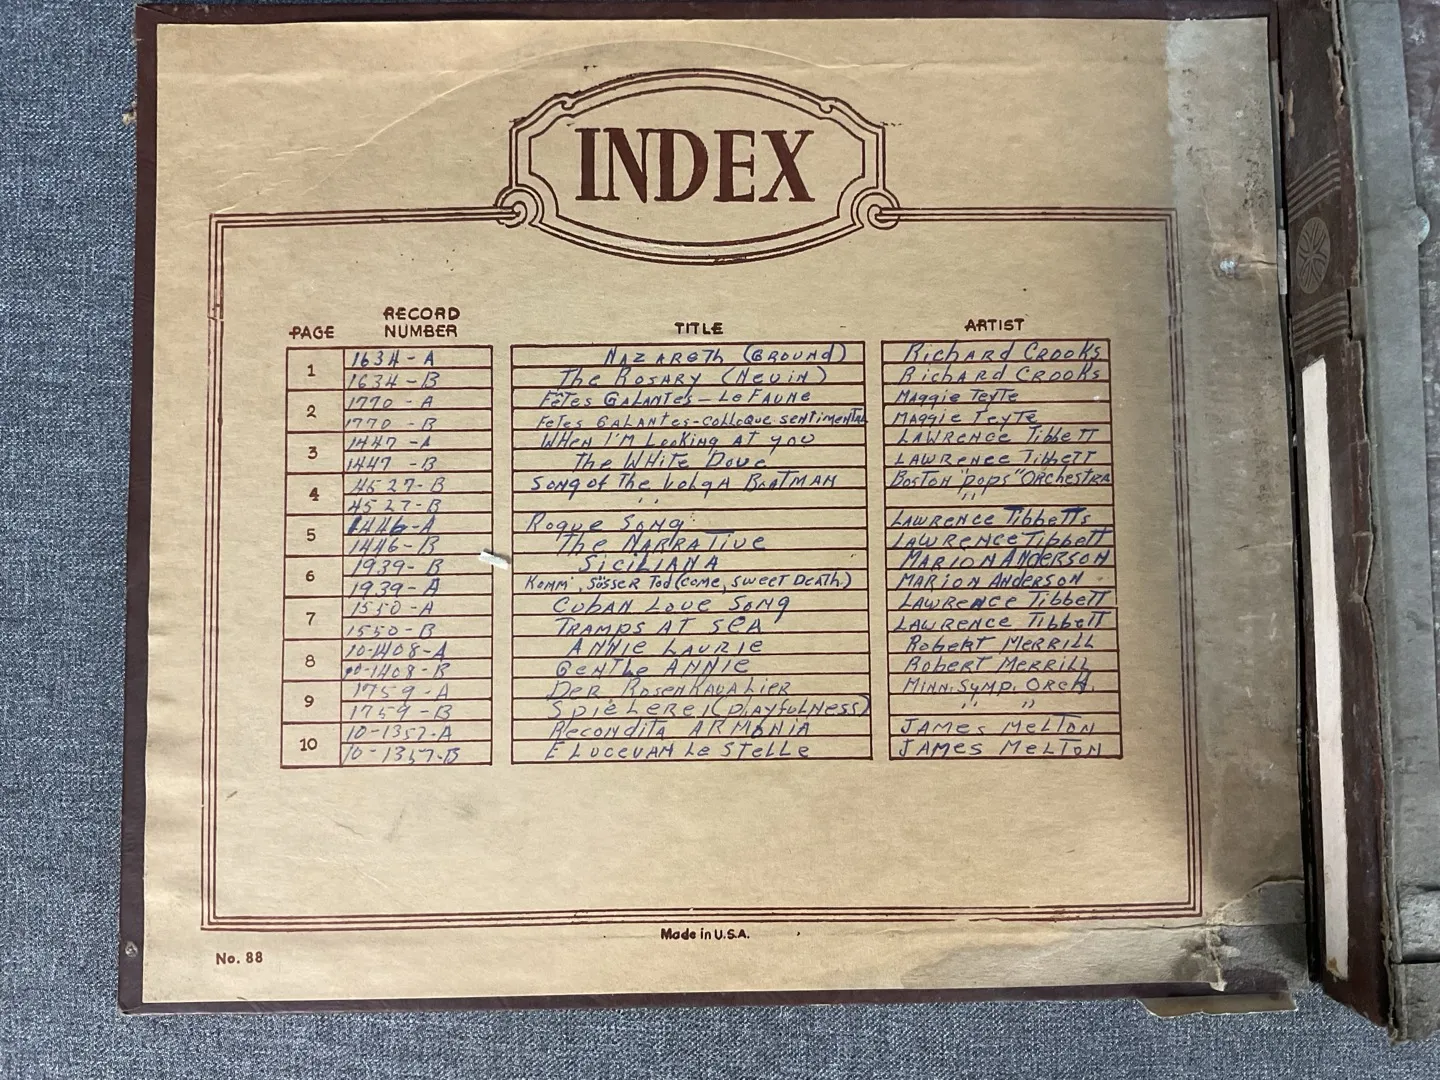 INDEX
PAGE RECORD NUMBER TITLE ARTIST
1 1634-A NAZARETH (GROUND) Richard CROOKS
1634-B The ROSARY (Nevin) Richard CROOKS
2 1770-A FêTes GALANTES - Le FAUNE MAGGie TeyTe
1770-B FeTes GALANTes-collOque sentimental MAGGie TeyTe
3 1447-A WHen I'M Looking AT you LAWRence TibbeTT
1447-B The WHiTe Dove LAWRence TibbeTT
4 4527-B Song of The VolgA BOATMAN BosTon "pops" ORchestRA
4527-B " " "
5 1446-A Rogue Song LAWRence TibbeTTs
1446-B The NARRATive LAWRence TibbeTT
6 1939-B SiciliANA MARION ANDERSON
1939-A Komm', süsser Tod (come, sweet DeATh) MARION ANDERSON
7 1550-A CUBAN Love Song LAWRence TibbeTT
1550-B TRAMPS AT SEA LAWRence TibbeTT
8 10-1408-A ANNie LAURie RobeRT MeRRiLL
10-1408-B GenTLe ANNie RobeRT MeRRiLL
9 1759-A DeR RosenKAVALieR MiNN. SyMp. ORcH.
1759-B SpieLeRei (pLAyfuLNess) " "
10 10-1357-A RecondiTA ARMONiA JAMes MeLTON
10-1357-B E LUCEVAN Le STeLLe JAMes MeLTON
Made in U.S.A.
No. 88